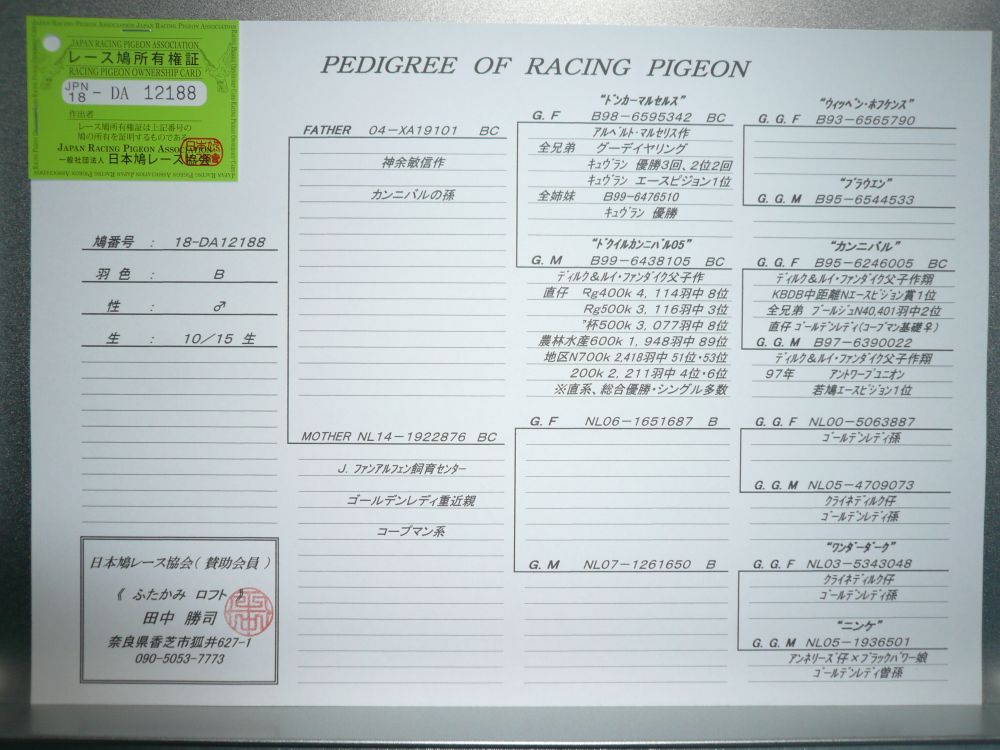 JAPAN RACING PIGEON ASSOCIATION
レース鳩所有権証
RACING PIGEON OWNERSHIP CARD
JPN 18 - DA 12188
作出者
レース鳩所有権証は上記番号の
鳩の所有を証明するものである
JAPAN RACING PIGEON ASSOCIATION
一般社団法人 日本鳩レース協会
PEDIGREE OF RACING PIGEON
鳩番号 : 18-DA12188
羽色 : B
性 : ♂
生 : 10/15 生
日本鳩レース協会(賛助会員)
《ふたかみ ロフト》
田中 勝司
奈良県香芝市狐井627-1
090-5053-7773
FATHER 04-XA19101 BC
神余敏信作
カンニバルの孫
MOTHER NL14-1922876 BC
J. ファンアルフェン飼育センター
ゴールデンレディ重近親
コープマン系
"ドンカーマルセルス"
G. F B98-6595342 BC
アルベルト・マルセリス作
全兄弟 グーデイヤリング
キュヴラン 優勝3回、2位2回
キュヴラン エースピジョン1位
全姉妹 B99-6476510
キュヴラン 優勝
"ドクイルカンニバル05"
G. M B99-6438105 BC
ディルク&ルイ・ファンダイク父子作
直仔 Rg400k 4, 114羽中 8位
Rg500k 3, 116羽中 3位
杯500k 3, 077羽中 8位
農林水産600k 1, 948羽中 89位
地区N700k 2,418羽中 51位・53位
200k 2, 211羽中 4位・6位
※直系、総合優勝・シングル多数
G. F NL06-1651687 B
G. M NL07-1261650 B
"ウィッペン・ホフケンス"
G. G. F B93-6565790
"ブラウエン"
G. G. M B95-6544533
"カンニバル"
G. G. F B95-6246005 BC
ディルク&ルイ・ファンダイク父子作翔
KBDB中距離Nエースピジョン賞1位
全兄弟 ブールジュN40,401羽中2位
直仔 ゴールデンレディ(コープマン基礎♀)
G. G. M B97-6390022
ディルク&ルイ・ファンダイク父子作翔
97年 アントワープユニオン
若鳩エースピジョン1位
G. G. F NL00-5063887
ゴールデンレディ孫
G. G. M NL05-4709073
クライネディルク仔
ゴールデンレディ孫
"ワンダーダーク"
G. G. F NL03-5343048
クライネディルク仔
ゴールデンレディ孫
"ニンケ"
G. G. M NL05-1936501
アンネリーズ仔×ブラックパワー娘
ゴールデンレディ曽孫